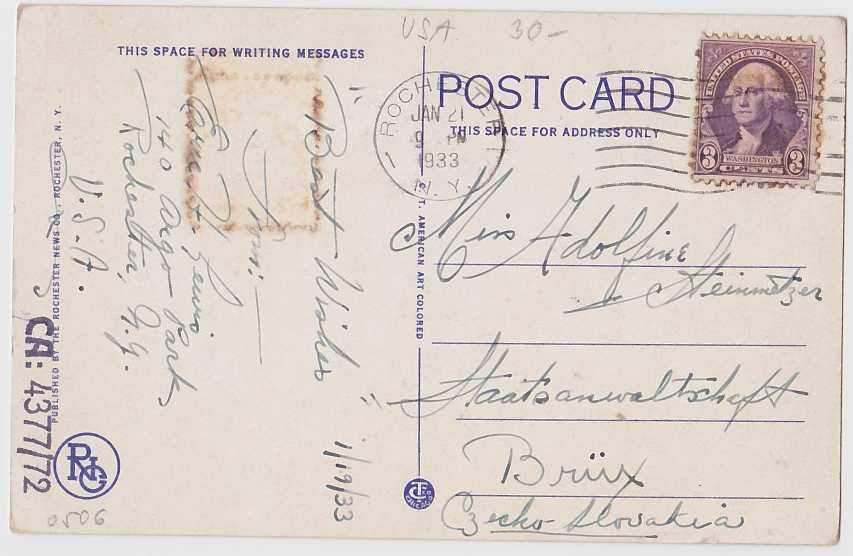 USA 30-
THIS SPACE FOR WRITING MESSAGES
POST CARD
THIS SPACE FOR ADDRESS ONLY
ROCHESTER
JAN 21
9 PM
1933
N.Y.
UNITED STATES POSTAGE
3 WASHINGTON 3
CENTS
1/19/33
"Best Wishes"
From:—
Lewis
140 Argo Park,
Rochester, N.Y.
U.S.A.
Miss Adolfine
Steinmetzer
Staatsanwaltschaft
Brüx
Czecho-Slovakia
PUBLISHED BY THE ROCHESTER NEWS CO., ROCHESTER, N. Y.
C.T. AMERICAN ART COLORED
CA: 4377/72
RNC
CHICAGO
0506